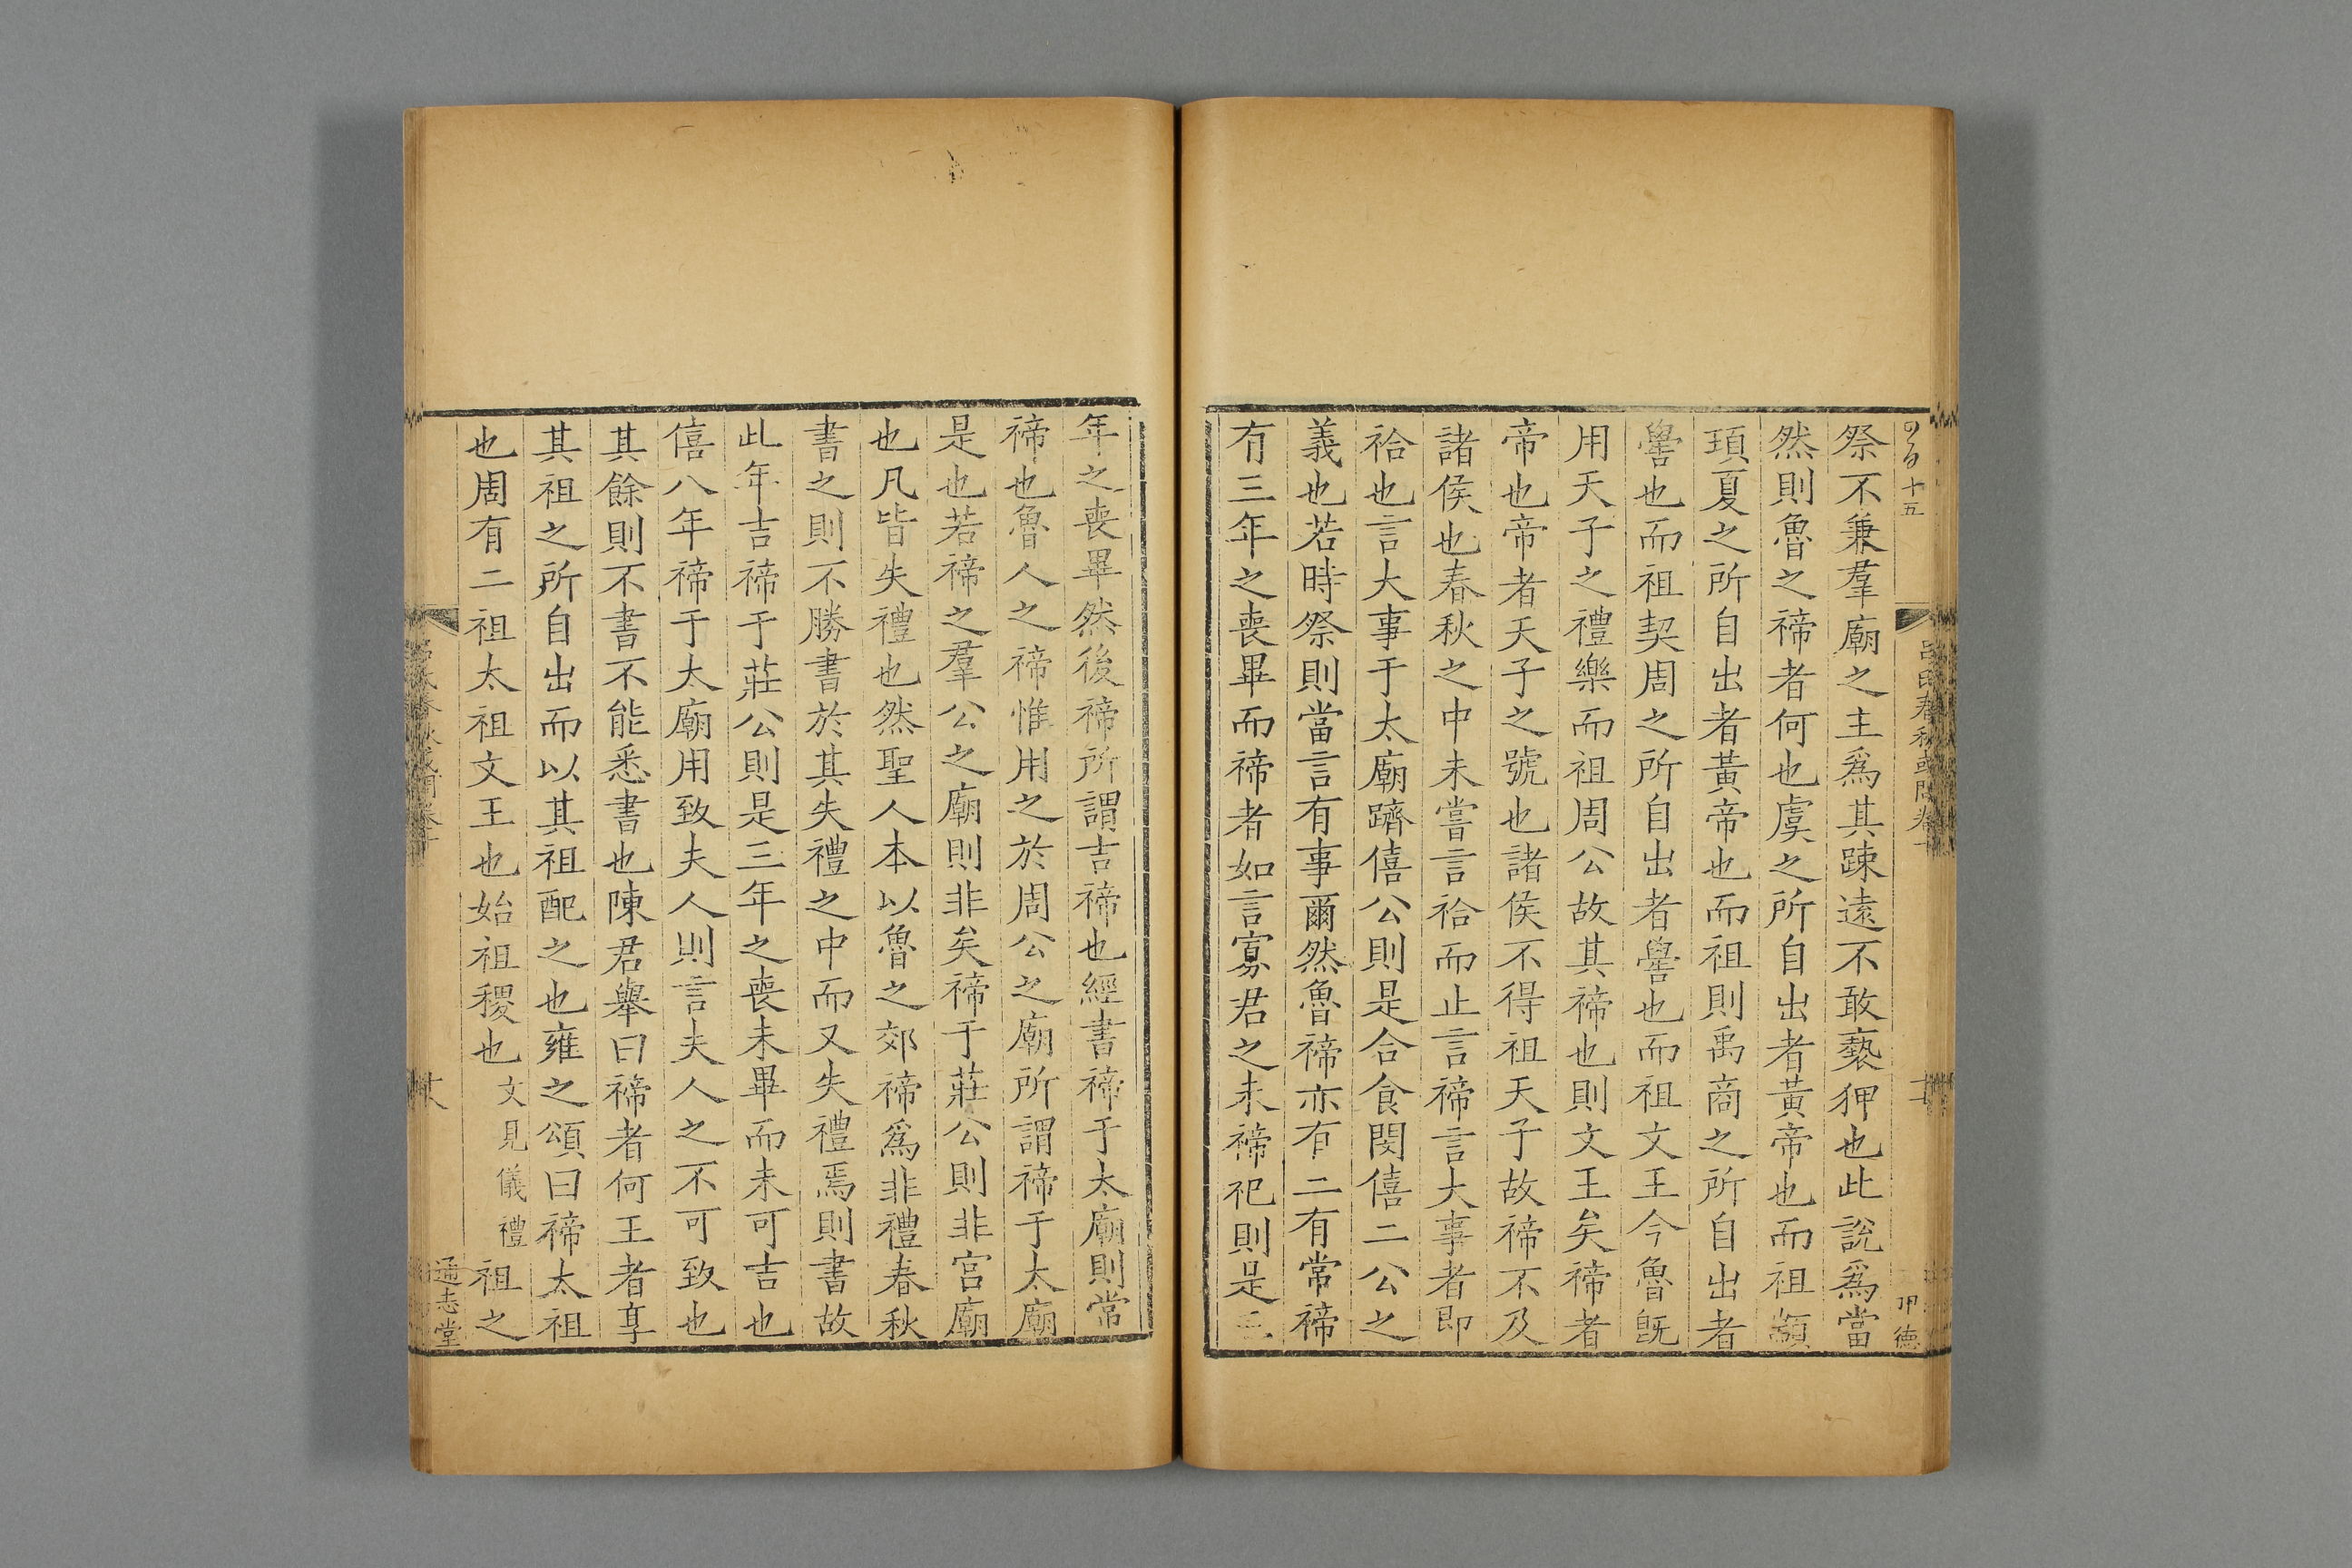 十五
祭不兼羣廟之主爲其踈遠不敢䙝狎也此説爲當
然則魯之禘者何也虞之所自出者黃帝也而祖顓
頊夏之所自出者黃帝也而祖則禹商之所自出者
嚳也而祖契周之所自出者嚳也而祖文王今魯旣
用天子之禮樂而祖周公故其禘也則文王矣禘者
帝也帝者天子之號也諸侯不得祖天子故禘不及
諸侯也春秋之中未嘗言祫而止言禘言大事者即
祫也言大事于太廟躋僖公則是合食閔僖二公之
義也若時祭則當言有事爾然魯禘亦有二有常禘
有三年之喪畢而禘者如言寡君之未禘祀則是三
年之喪畢然後禘所謂吉禘也經書禘于太廟則常
禘也魯人之禘惟用之於周公之廟所謂禘于太廟
是也若禘之羣公之廟則非矣禘于莊公則非宫廟
也凡皆失禮也然聖人本以魯之郊禘爲非禮春秋
書之則不勝書於其失禮之中而又失禮焉則書故
此年吉禘于莊公則是三年之喪未畢而未可吉也
僖八年禘于太廟用致夫人則言夫人之不可致也
其餘則不書不能悉書也陳君舉曰禘者何王者享
其祖之所自出而以其祖配之也雍之頌曰禘太祖
也周有二祖太祖文王也始祖稷也文見儀禮祖之
通志堂